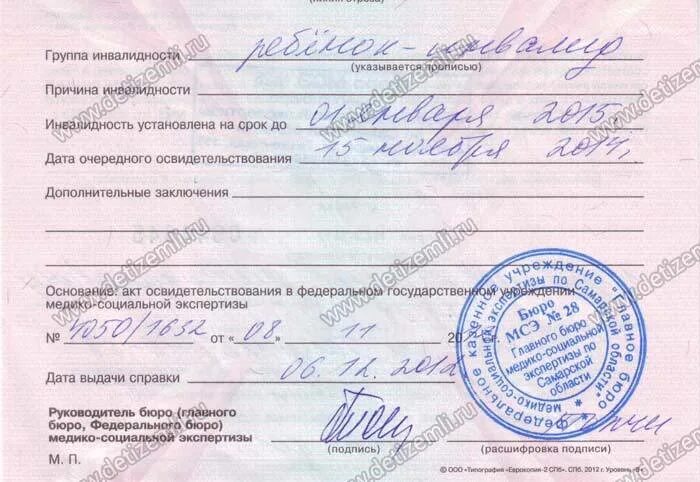 (линия отреза)
Группа инвалидности ребёнок-инвалид
(указывается прописью)
Причина инвалидности
Инвалидность установлена на срок до 01 января 2015
Дата очередного освидетельствования 15 ноября 2014г.
Дополнительные заключения
Основание: акт освидетельствования в федеральном государственном учреждении
медико-социальной экспертизы
№ 4050/1632 от « 08 » 11 20
Дата выдачи справки 06.12.2012
Руководитель бюро (главного
бюро, Федерального бюро)
медико-социальной экспертизы
(подпись) (расшифровка подписи)
М. П.
© ООО «Типография «Еврокопия-2 СПб». СПб. 2012 г. Уровень «В»
Федеральное казенное учреждение "Главное бюро
медико-социальной экспертизы по Самарской области"
Бюро
МСЭ № 28
Главного бюро
медико-социальной
экспертизы по
Самарской
области
www.detizemli.ru
www.detizemli.ru
www.detizemli.ru
www.detizemli.ru
www.detizemli.ru
www.detizemli.ru
www.detizemli.ru